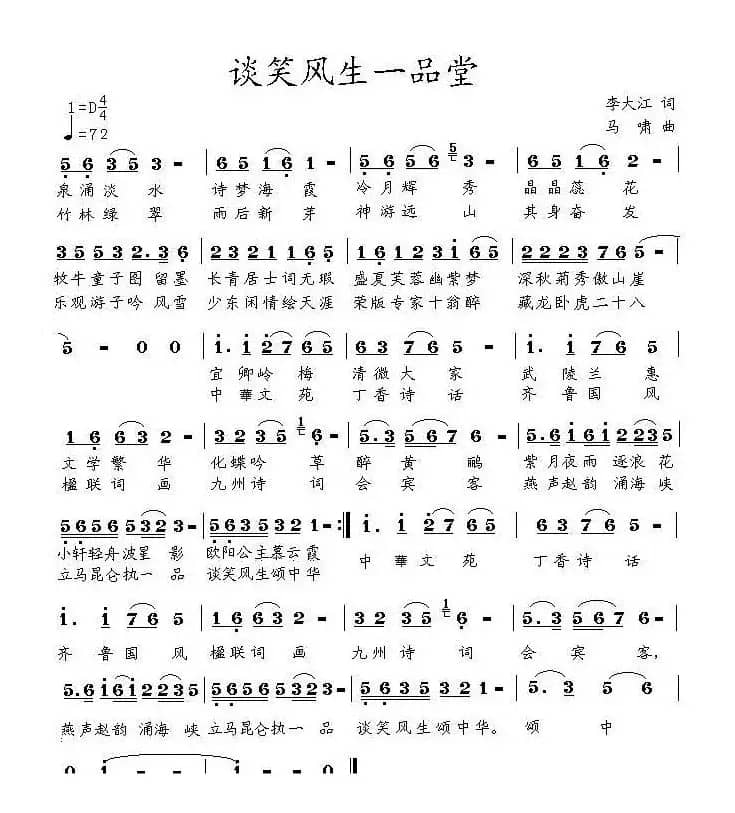 谈笑风生一品堂
1=D4/4
♩=72
李大江 词
马 啸 曲
5 6 3 5 3 - | 6 5 1 6 1 - | 5 6 5 6 5 - | 6 5 1 6 2 -
泉涌淡 水 诗梦海 霞 冷月辉 秀 晶晶蕊 花
竹林绿 翠 雨后新 芽 神游远 山 其身奋 发
牧牛童子图 留墨 长青居士词无瑕 盛夏芙蓉幽紫梦 深秋菊秀傲山崖
乐观游子吟 风雪 少东闲情绘天涯 荣版专家十翁醉 藏龙卧虎二十八
5 - 0 0 | i. i 2 7 6 5 | 6 3 7 6 5 - | i. i 7 6 5
宜 卿岭 梅 清微大 家 武 陵兰 惠
中 華文 苑 丁香诗 话 齐 鲁国 风
1 6 6 3 2 - | 3 2 3 5 1 6 - | 5. 3 5 6 7 6 - | 5.6 i 6 i 2 2 3 5
文学繁 华 化蝶吟 草 醉 黄 鹂 紫月夜雨 逐浪 花
楹联词 画 九州诗 词 会 宾 客 燕声赵韵 涌海 峡
小轩轻舟波星 影 欧阳公主慕云霞 中 華文 苑 丁香诗 话
立马昆仑执一 品 谈笑风生颂中华
i. i 7 6 5 | 1 6 6 3 2 - | 3 2 3 5 1 6 - | 5. 3 5 6 7 6 -
齐 鲁国 风 楹联词 画 九州诗 词 会 宾 客,
燕声赵韵 涌海 峡 立马昆仑执一 品 谈笑风生颂中华。 颂 中
0 i - - | i - 0 - ‖